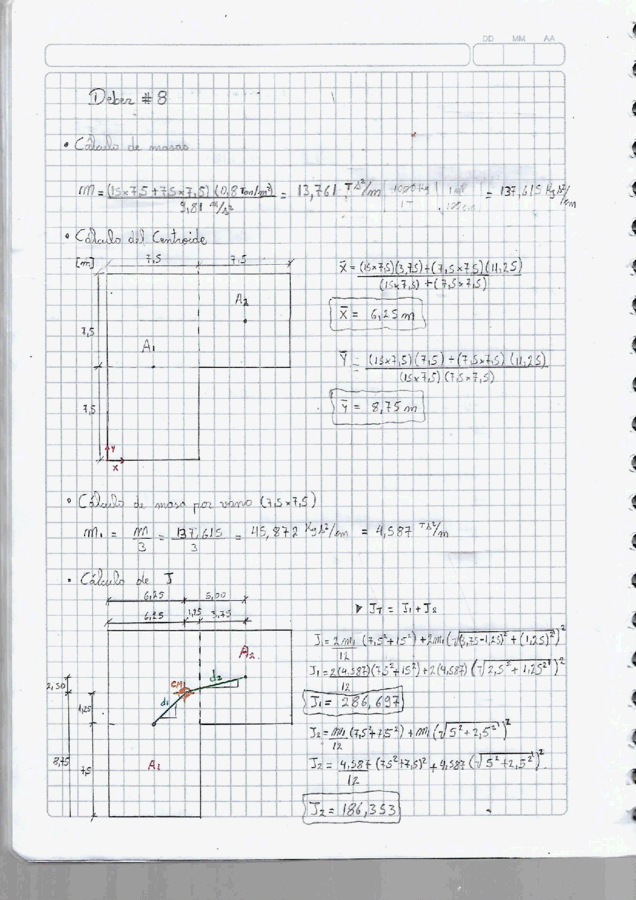 DD MM AA
Deber # 8
• Cálculo de masas
m = (15x7,5 + 7,5x7,5)(0,8 Ton/m²) / 9,81 m/s² = 13,761 T s²/m | 1000 kg / 1T | 1 m / 100 cm = 137,615 Kg s²/cm
• Cálculo del Centroide
[m] 7,5 7,5
X̄ = (15x7,5)(3,75)+(7,5x7,5)(11,25) / (15x7,5)+(7,5x7,5)
A2
X̄ = 6,25 m
7,5
A1
Ȳ = (15x7,5)(7,5)+(7,5x7,5)(11,25) / (15x7,5)(7,5x7,5)
Ȳ = 8,75 m
7,5
Y
X
• Cálculo de masa por vano (7,5x7,5)
m1 = m/3 = 137,615/3 = 45,872 Kg s²/cm = 4,587 T s²/m
• Cálculo de J
6,25 5,00
6,25 1,25 3,75
JT = J1 + J2
J1 = 2m1/12 (7,5²+15²) + 2m1(√(3,75-1,25)²+(1,25)²)²
A2
J1 = 2(4,587)/12 (7,5²+15²) + 2(4,587)(√2,5²+1,25²)²
CM d2
2,50
d1
J1 = 286,697
1,25
J2 = m1/12 (7,5²+7,5²) + m1(√5²+2,5²)²
8,75
A1
7,5
J2 = 4,587/12 (7,5²+7,5)² + 4,587(√5²+2,5²)²
J2 = 186,353